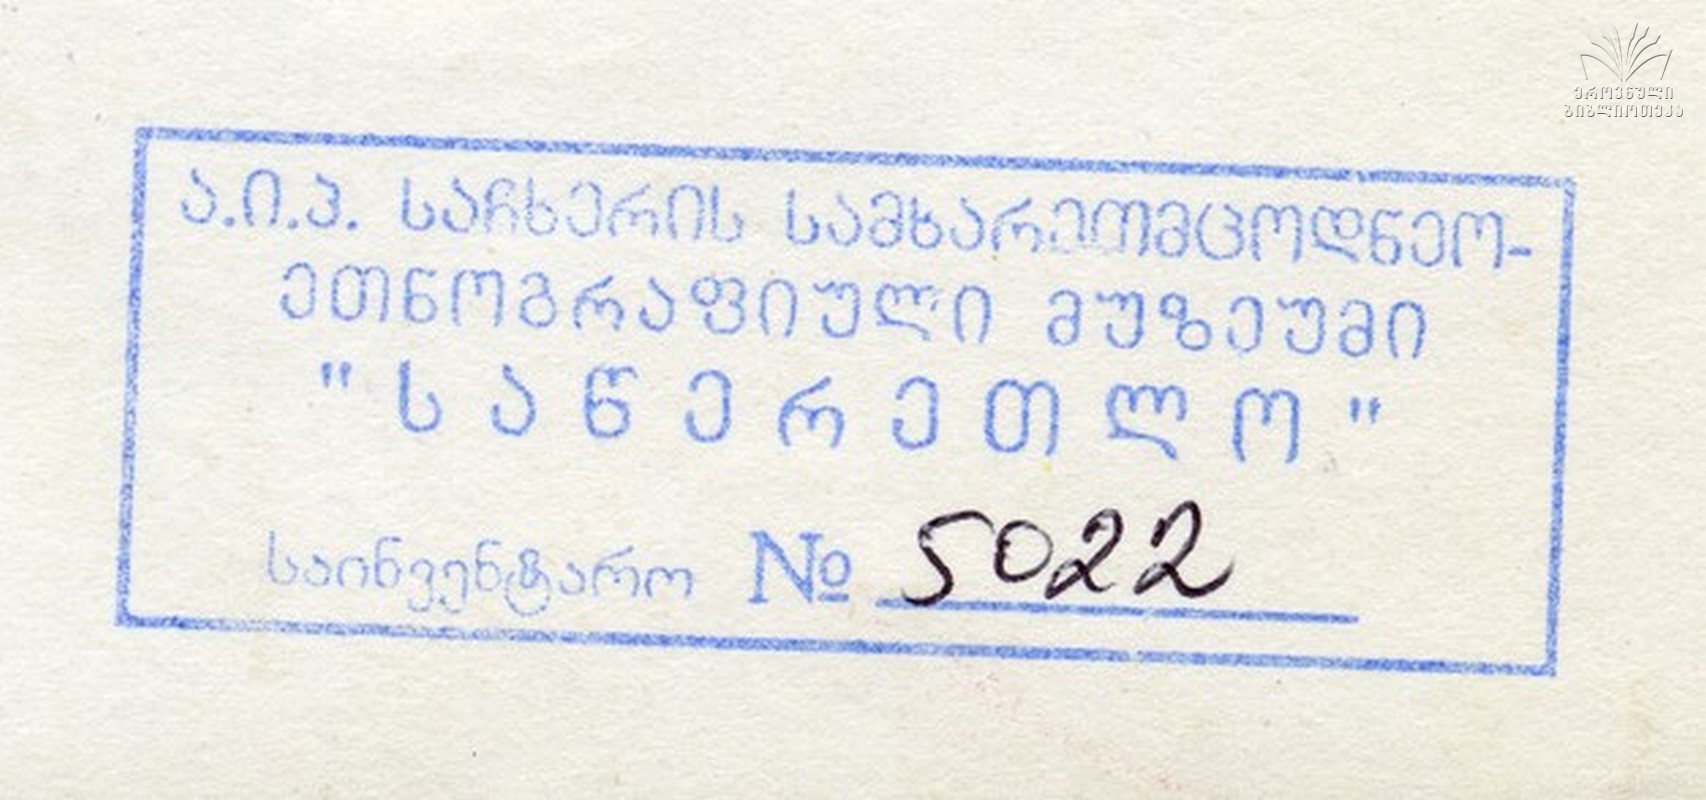 ეროვნული
ბიბლიოთეკა
ა.ი.პ. საჩხერის სამხარეთმცოდნეო-
ეთნოგრაფიული მუზეუმი
"საწერეთლო"
საინვენტარო № 5022